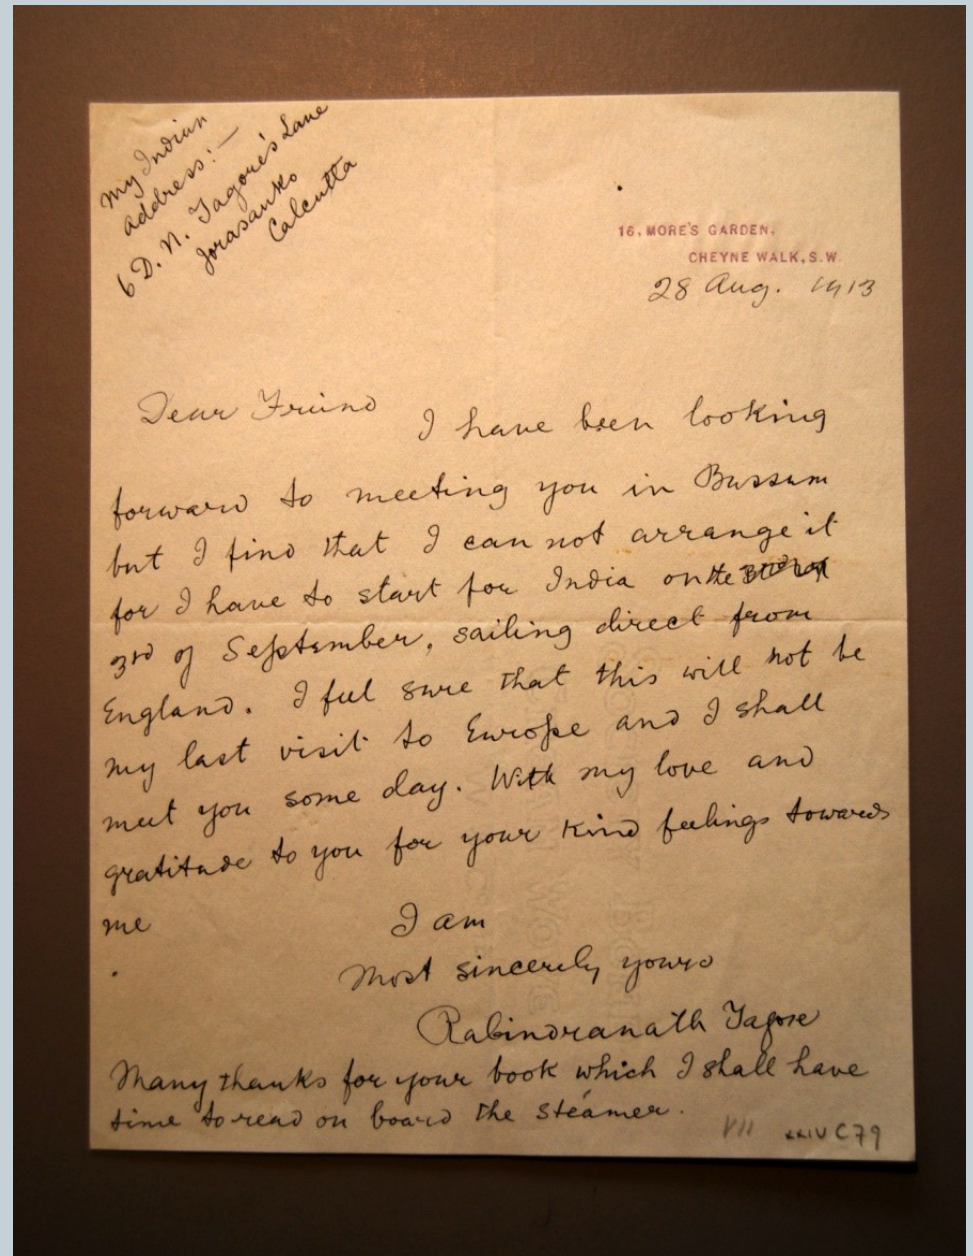 My Indian
address:—
6 D. N. Tagore's Lane
Jorasanko
Calcutta
16, MORE'S GARDEN,
CHEYNE WALK, S.W.
28 Aug. 1913
Dear Friend
I have been looking
forward to meeting you in Bussum
but I find that I can not arrange it
for I have to start for India on the
3rd of September, sailing direct from
England. I feel sure that this will not be
my last visit to Europe and I shall
meet you some day. With my love and
gratitude to you for your kind feelings towards
me
I am
Most sincerely yours
Rabindranath Tagore
Many thanks for your book which I shall have
time to read on board the steamer.
VII
xxIV C79